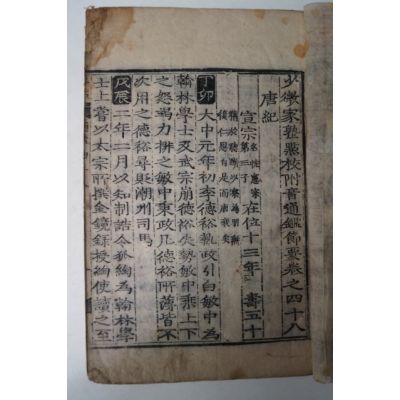 少微家塾點校附音通鑑節要卷之四十八
唐紀
宣宗 在位十三年 壽五十
丁卯 大中元年初李德裕執政引白敏中爲
翰林學士及武宗崩德裕失勢敏中乘上下
之怨竭力排之敏中秉政凡德裕所薄皆不
次用之德裕尋貶潮州司馬
戊辰 二年二月以知制誥令狐綯爲翰林學
士上嘗以太宗所撰金鏡錄授綯使讀之至